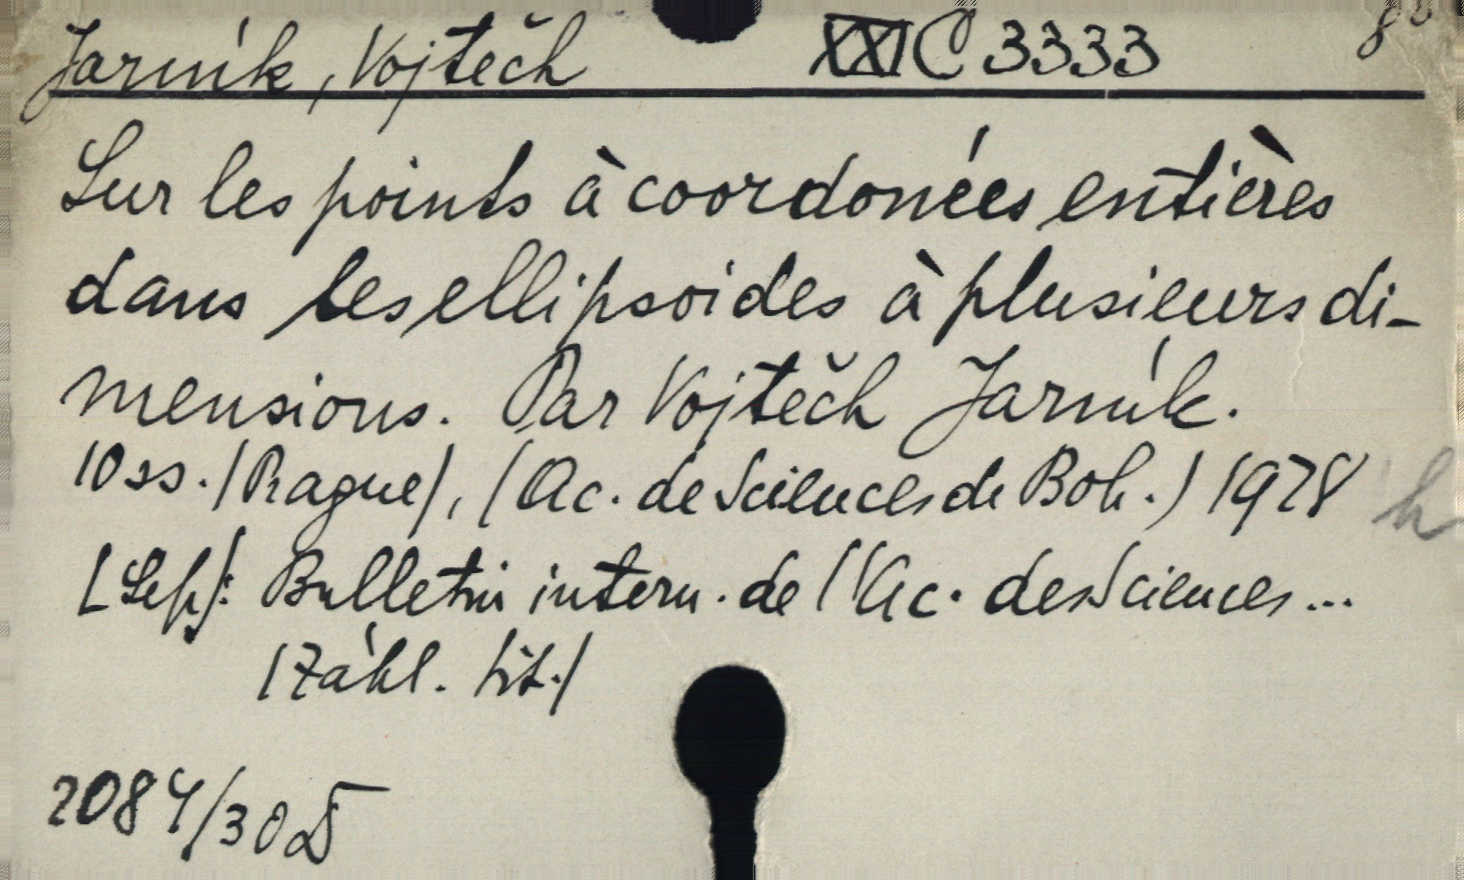 Jarník, Vojtěch XXI C 3333 8°
Sur les points à coordonées entières
dans les ellipsoides à plusieurs di-
mensions. Par Vojtěch Jarník.
10 ss. /Prague/, (Ac. de Sciences de Boh.) 1928 h
[Sep]: Bulletin intern. de l'Ac. des Sciences...
/Záhl. tit./
2084/30